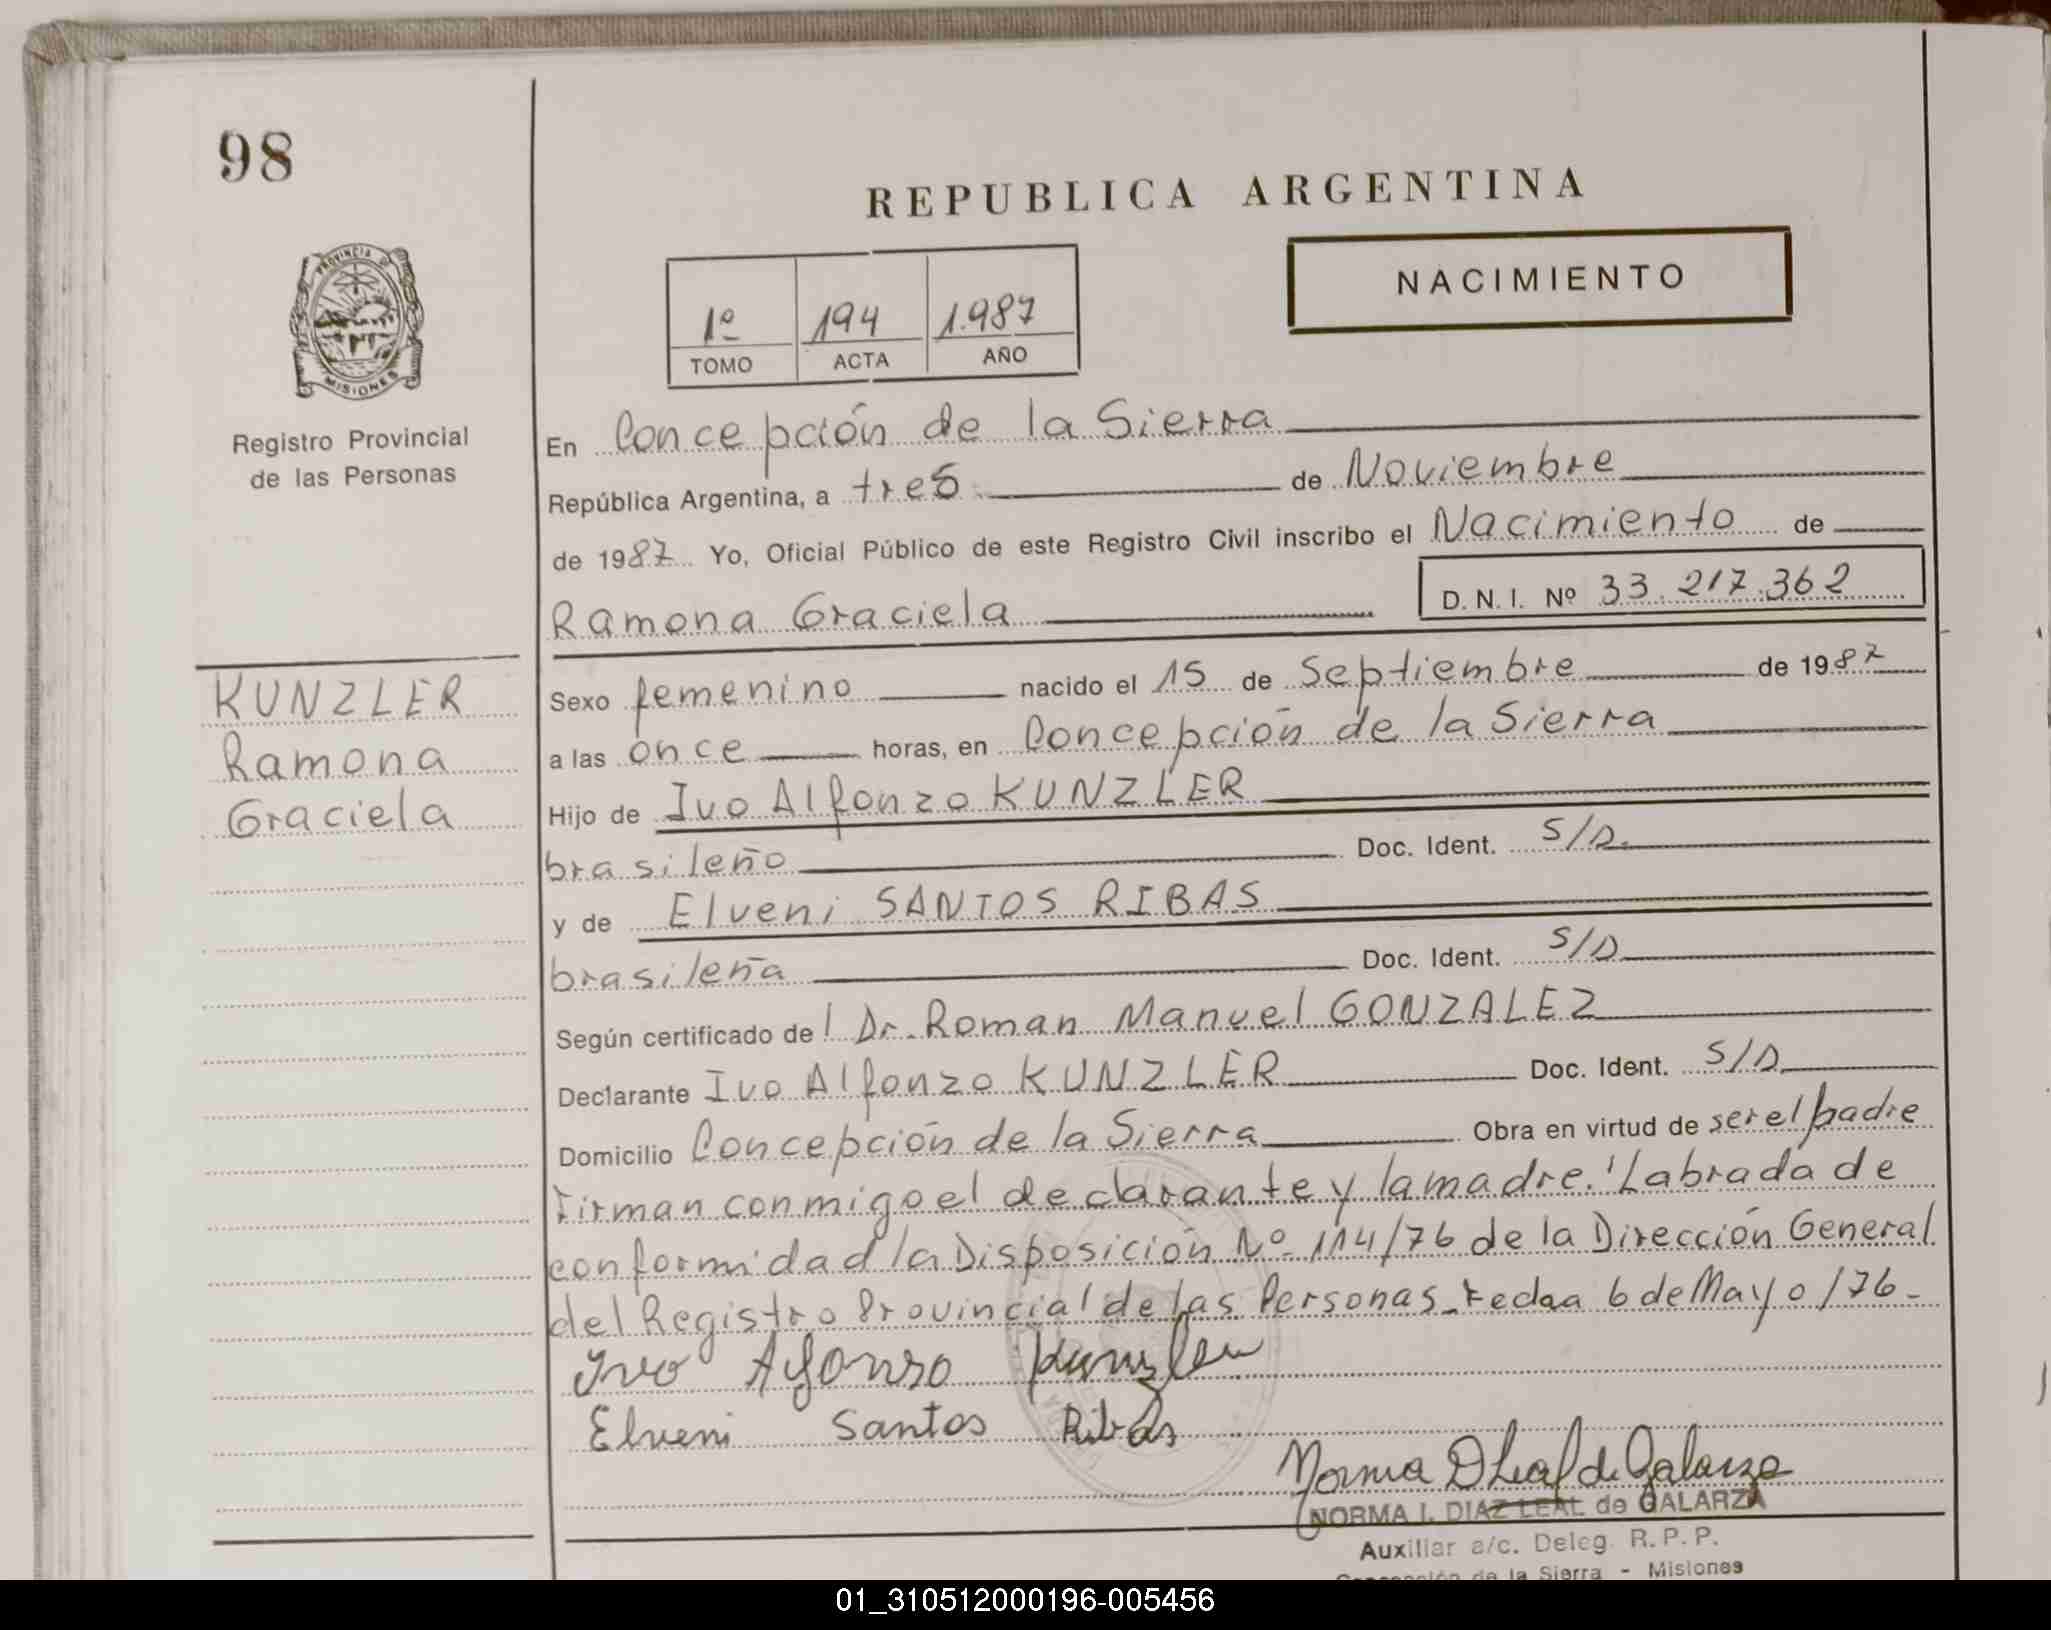 98
REPUBLICA ARGENTINA
PROVINCIA DE
MISIONES
Registro Provincial
de las Personas
1º 194 1.987
TOMO ACTA AÑO
NACIMIENTO
En Concepción de la Sierra
República Argentina, a tres de Noviembre
de 1987 Yo, Oficial Público de este Registro Civil inscribo el Nacimiento de
Ramona Graciela D.N.I. Nº 33.217.362
KUNZLER
Ramona
Graciela
Sexo femenino nacido el 15 de Septiembre de 1987
a las once horas, en Concepción de la Sierra
Hijo de Ivo Alfonzo KUNZLER
brasileño Doc. Ident. S/D.
y de Elveni SANTOS RIBAS
brasileña Doc. Ident. S/D
Según certificado del Dr. Roman Manuel GONZALEZ
Declarante Ivo Alfonzo KUNZLER Doc. Ident. S/D
Domicilio Concepción de la Sierra Obra en virtud de ser el padre
Firman conmigo el declarante y la madre. Labrada de
conformidad la Disposición Nº 114/76 de la Dirección General
del Registro Provincial de las Personas. Fecha 6 de Mayo/76-
Ivo Afonso Kunzler
Elveni Santos Ribas
Norma D Leal de Galarza
NORMA I. DIAZ LEAL de GALARZA
Auxiliar a/c. Deleg. R.P.P.
Concepción de la Sierra - Misiones
01_310512000196-005456